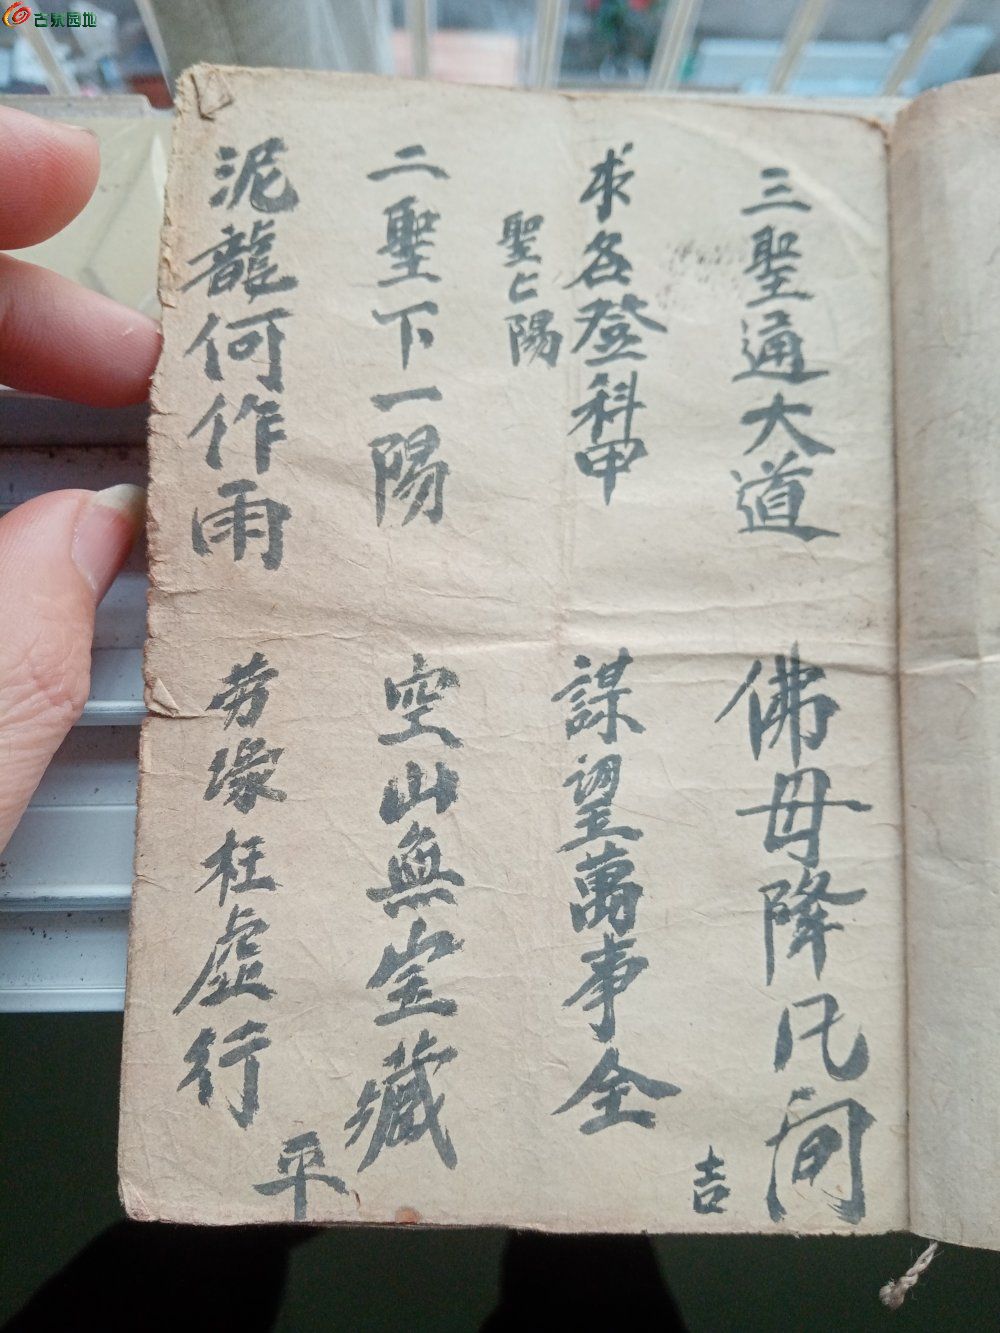 古泉园地
三聖通大道
佛母降凡间
求名登科甲
謀望萬事全
吉
聖陽
二聖下一陽
空山無宝藏
泥龍何作雨
劳缘枉虛行
平